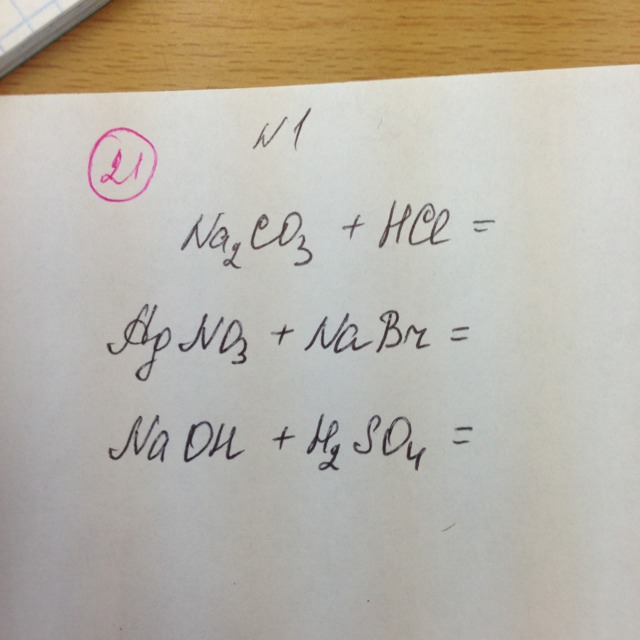 21
N1
Na₂CO₃ + HCl =
AgNO₃ + NaBr =
NaOH + H₂SO₄ =